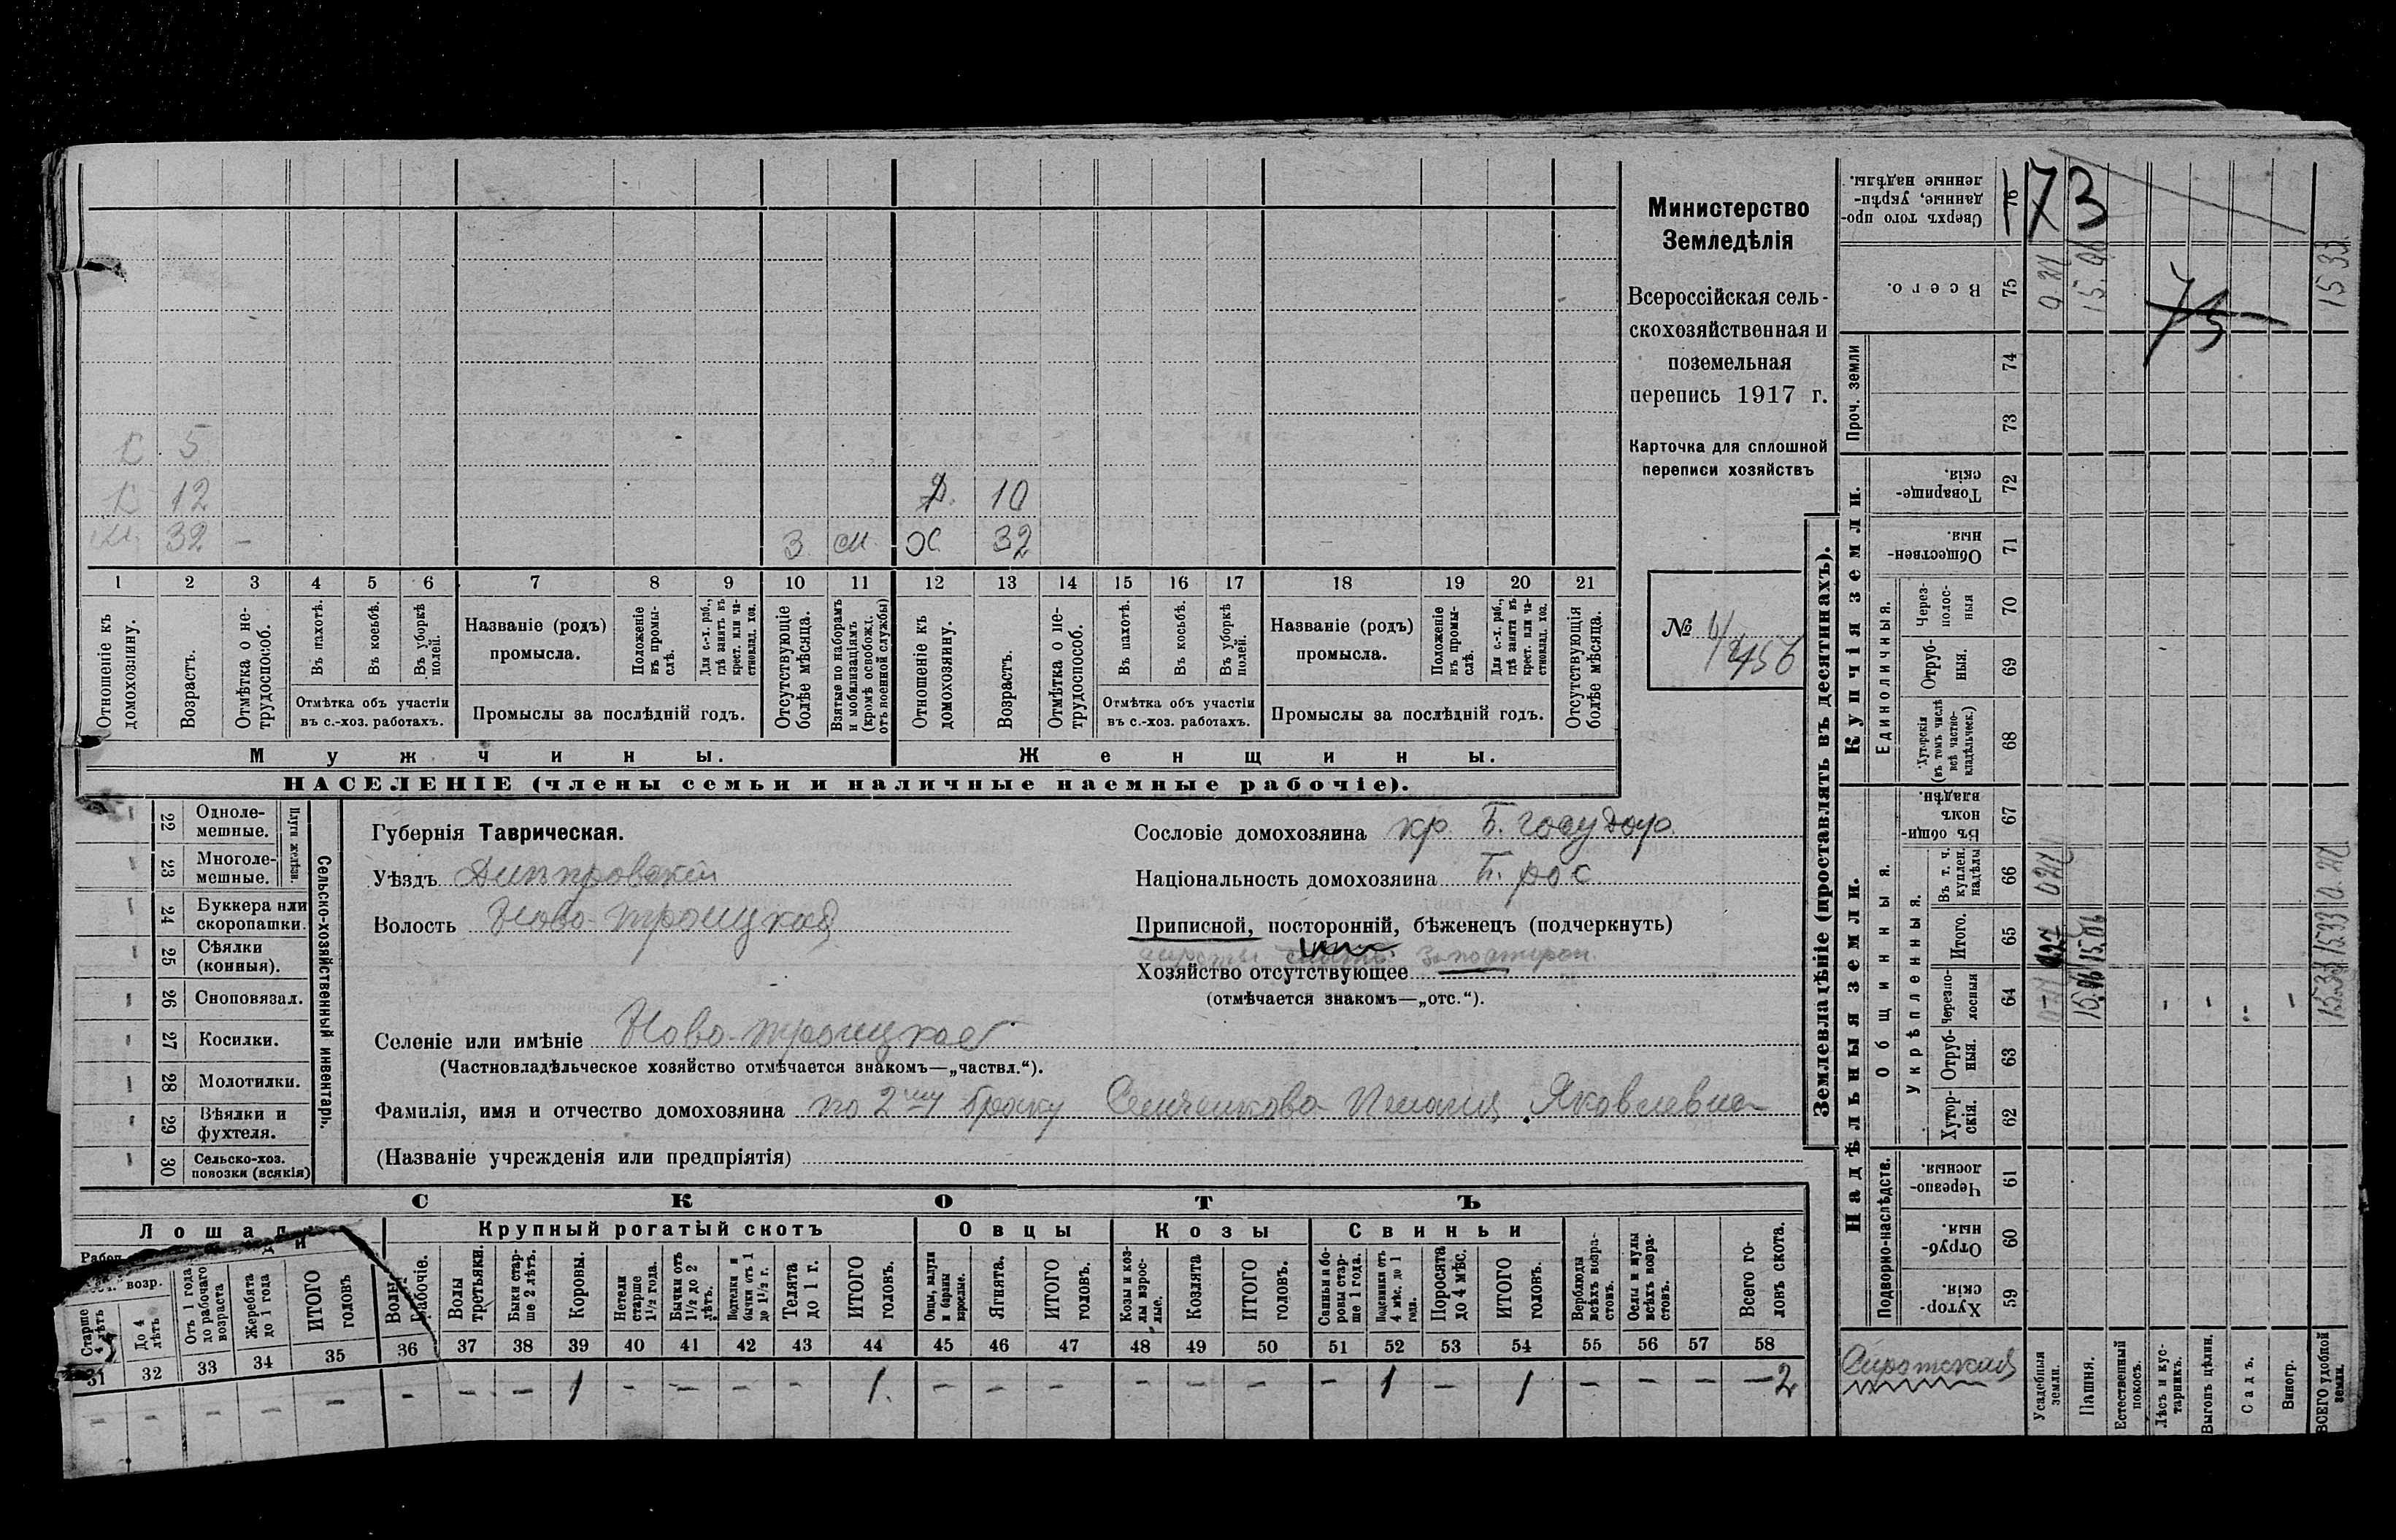 Министерство
Земледѣлія
Всероссійская сель-
скохозяйственная и
поземельная
перепись 1917 г.
Карточка для сплошной
переписи хозяйствъ
№
5
12 Д. 10
32 – З М Х 32
1 2 3 4 5 6 7 8 9 10 11 12 13 14 15 16 17 18 19 20 21
Отношеніе къ домохозяину.
Возрастъ.
Отмѣтка о не-трудоспособ.
Въ пахотѣ.
Въ косьбѣ.
Въ уборкѣ полей.
Отмѣтка объ участіи
въ с.-хоз. работахъ.
Названіе (родъ)
промысла.
Положеніе въ промы-слѣ.
Для с.-х. раб., гдѣ занятъ въ крест. или ча-стновлад. хоз.
Промыслы за послѣдній годъ.
Отсутствующіе болѣе мѣсяца.
Взятые по наборамъ и мобилизаціямъ (кромѣ освобожд. отъ военной службы)
Отношеніе къ домохозяину.
Возрастъ.
Отмѣтка о не-трудоспособ.
Въ пахотѣ.
Въ косьбѣ.
Въ уборкѣ полей.
Отмѣтка объ участіи
въ с.-хоз. работахъ.
Названіе (родъ)
промысла.
Положеніе въ промы-слѣ.
Для с.-х. раб., гдѣ занята въ крест. или ча-стновлад. хоз.
Промыслы за послѣдній годъ.
Отсутствующія болѣе мѣсяца.
Мужчины.
Женщины.
НАСЕЛЕНІЕ (члены семьи и наличные наемные рабочіе).
Сельско-хозяйственный инвентарь.
Плуги желѣзн.
22 Одноле-мешные.
23 Многоле-мешные.
24 Буккера или скоропашки.
25 Сѣялки (конныя).
26 Сноповязал.
27 Косилки.
28 Молотилки.
29 Вѣялки и фухтеля.
30 Сельско-хоз. повозки (всякія)
Губернія Таврическая.
Уѣздъ Днѣпровскій
Волость Ново-Троицкая
Сословіе домохозяина кр. б. государ.
Національность домохозяина рос.
Приписной, посторонній, бѣженецъ (подчеркнуть)
Хозяйство отсутствующее
(отмѣчается знакомъ—„отс.“).
Селеніе или имѣніе Ново-Троицкое
(Частновладѣльческое хозяйство отмѣчается знакомъ—„частвл.“).
Фамилія, имя и отчество домохозяина по 2му браку Яковлевна
(Названіе учрежденія или предпріятія)
СКОТЪ
Лошади
Крупный рогатый скотъ
Овцы
Козы
Свиньи
Старше 4 лѣтъ
До 4 лѣтъ
Отъ 1 года до рабочаго возраста
Жеребята до 1 года
ИТОГО головъ
Волы рабочіе.
Волы третьяки.
Быки стар-ше 2 лѣтъ.
Коровы.
Нетели старше 1½ года.
Бычки отъ 1½ до 2 лѣтъ.
Подтелки и бычки отъ 1 до 1½ г.
Телята до 1 г.
ИТОГО головъ.
Овцы, валухи и бараны взрослые.
Ягнята.
ИТОГО головъ.
Козы и коз-лы взрос-лые.
Козлята
ИТОГО головъ.
Свиньи и бо-ровы стар-ше 1 года.
Подсвинки отъ 4 мѣс. до 1 года.
Поросята до 4 мѣс.
ИТОГО головъ.
Верблюды всѣхъ возра-стовъ.
Ослы и мулы всѣхъ возра-стовъ.
Всего го-ловъ скота.
31 32 33 34 35 36 37 38 39 40 41 42 43 44 45 46 47 48 49 50 51 52 53 54 55 56 57 58
– – – – – – – – 1 – – – – 1 – – – – – – – 1 – 1 – – – –2
Землевладѣніе (проставлять въ десятинахъ).
Купчія земли.
Надѣльныя земли.
Сверхъ того про-данные, укрѣп-ленные надѣлы. 76
173
Всего. 75
15 33
Проч. земли 74 73
Товарище-скія. 72
Обществен-ныя. 71
Единоличныя.
Через-полос-ныя 70
Отруб-ныя. 69
Хуторскія (въ томъ числѣ всѣ частно-владѣльческ.) 68
Общинныя.
Въ общин-номъ владѣн. 67
Укрѣпленныя.
Въ т. ч. куплен. надѣлы 66
Итого. 65
Черезпо-лосныя 64
Отруб-ныя. 63
Хутор-скія. 62
Подворно-наслѣдств.
Черезпо-лосныя. 61
Отруб-ныя. 60
Хутор-скія. 59
Сиротская
Усадебныя земли.
Пашня.
Естественный покосъ.
Лѣсъ и кус-тарникъ.
Выгонъ цѣлин.
Садъ.
Виногр.
ВСЕГО удобной земли.